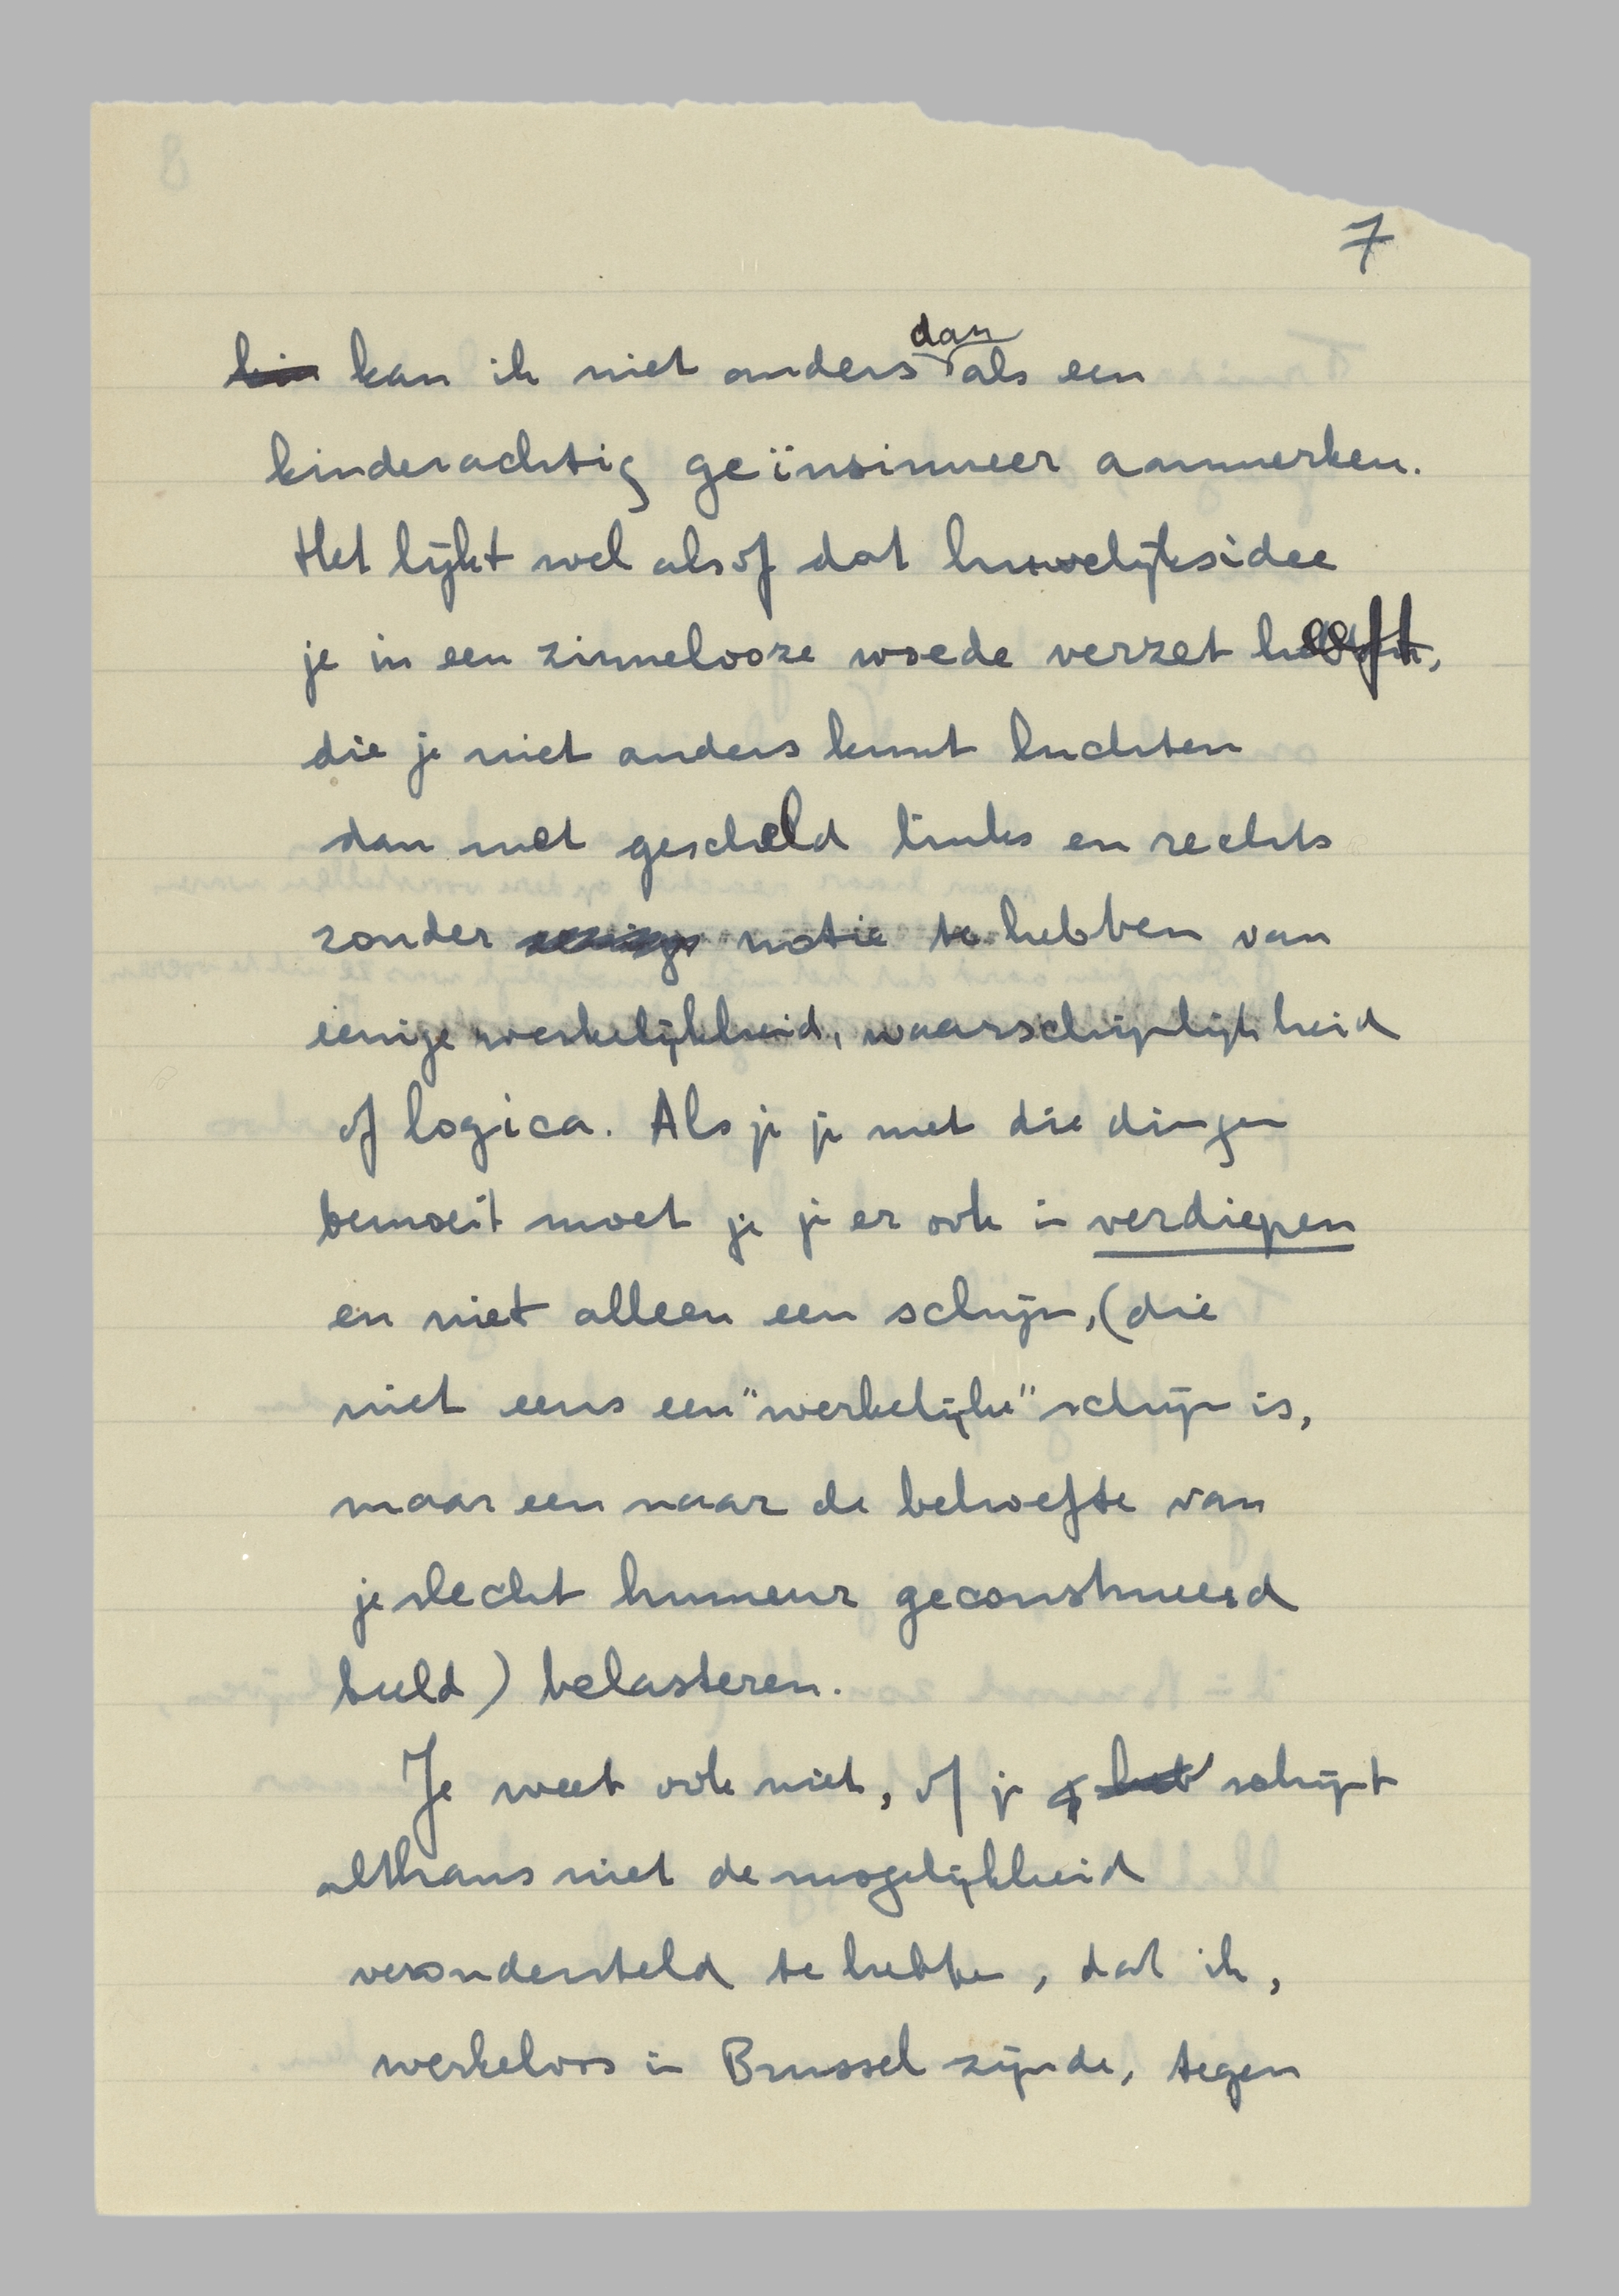 7
kan ik niet anders dan als een
kinderachtig geïnsinueer aanmerken.
Het lijkt wel alsof dat huwelijksidee
je in een zinnelooze woede verzet heeft,
die je niet anders kunt luchten
dan met gescheld links en rechts
zonder notie te hebben van
eenige werkelijkheid, waarschijnlijkheid
of logica. Als je je met die dingen
bemoeit moet je je er ook in verdiepen
en niet alleen een schijn, (die
niet eens een "werkelijke" schijn is,
maar een naar de behoefte van
je slecht humeur geconstrueerd
beeld) belasteren.
Je weet ook niet, of je schijnt
althans niet de mogelijkheid
verondersteld te hebben, dat ik,
werkeloos in Brussel zijnde, tegen